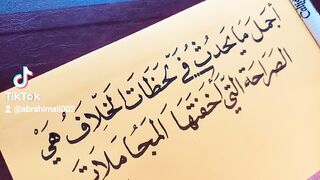 أجمل ما يحدث في لحظات الخلاف هي
الصراحة التي أخفتها المجاملات
TikTok
@abrahimali002